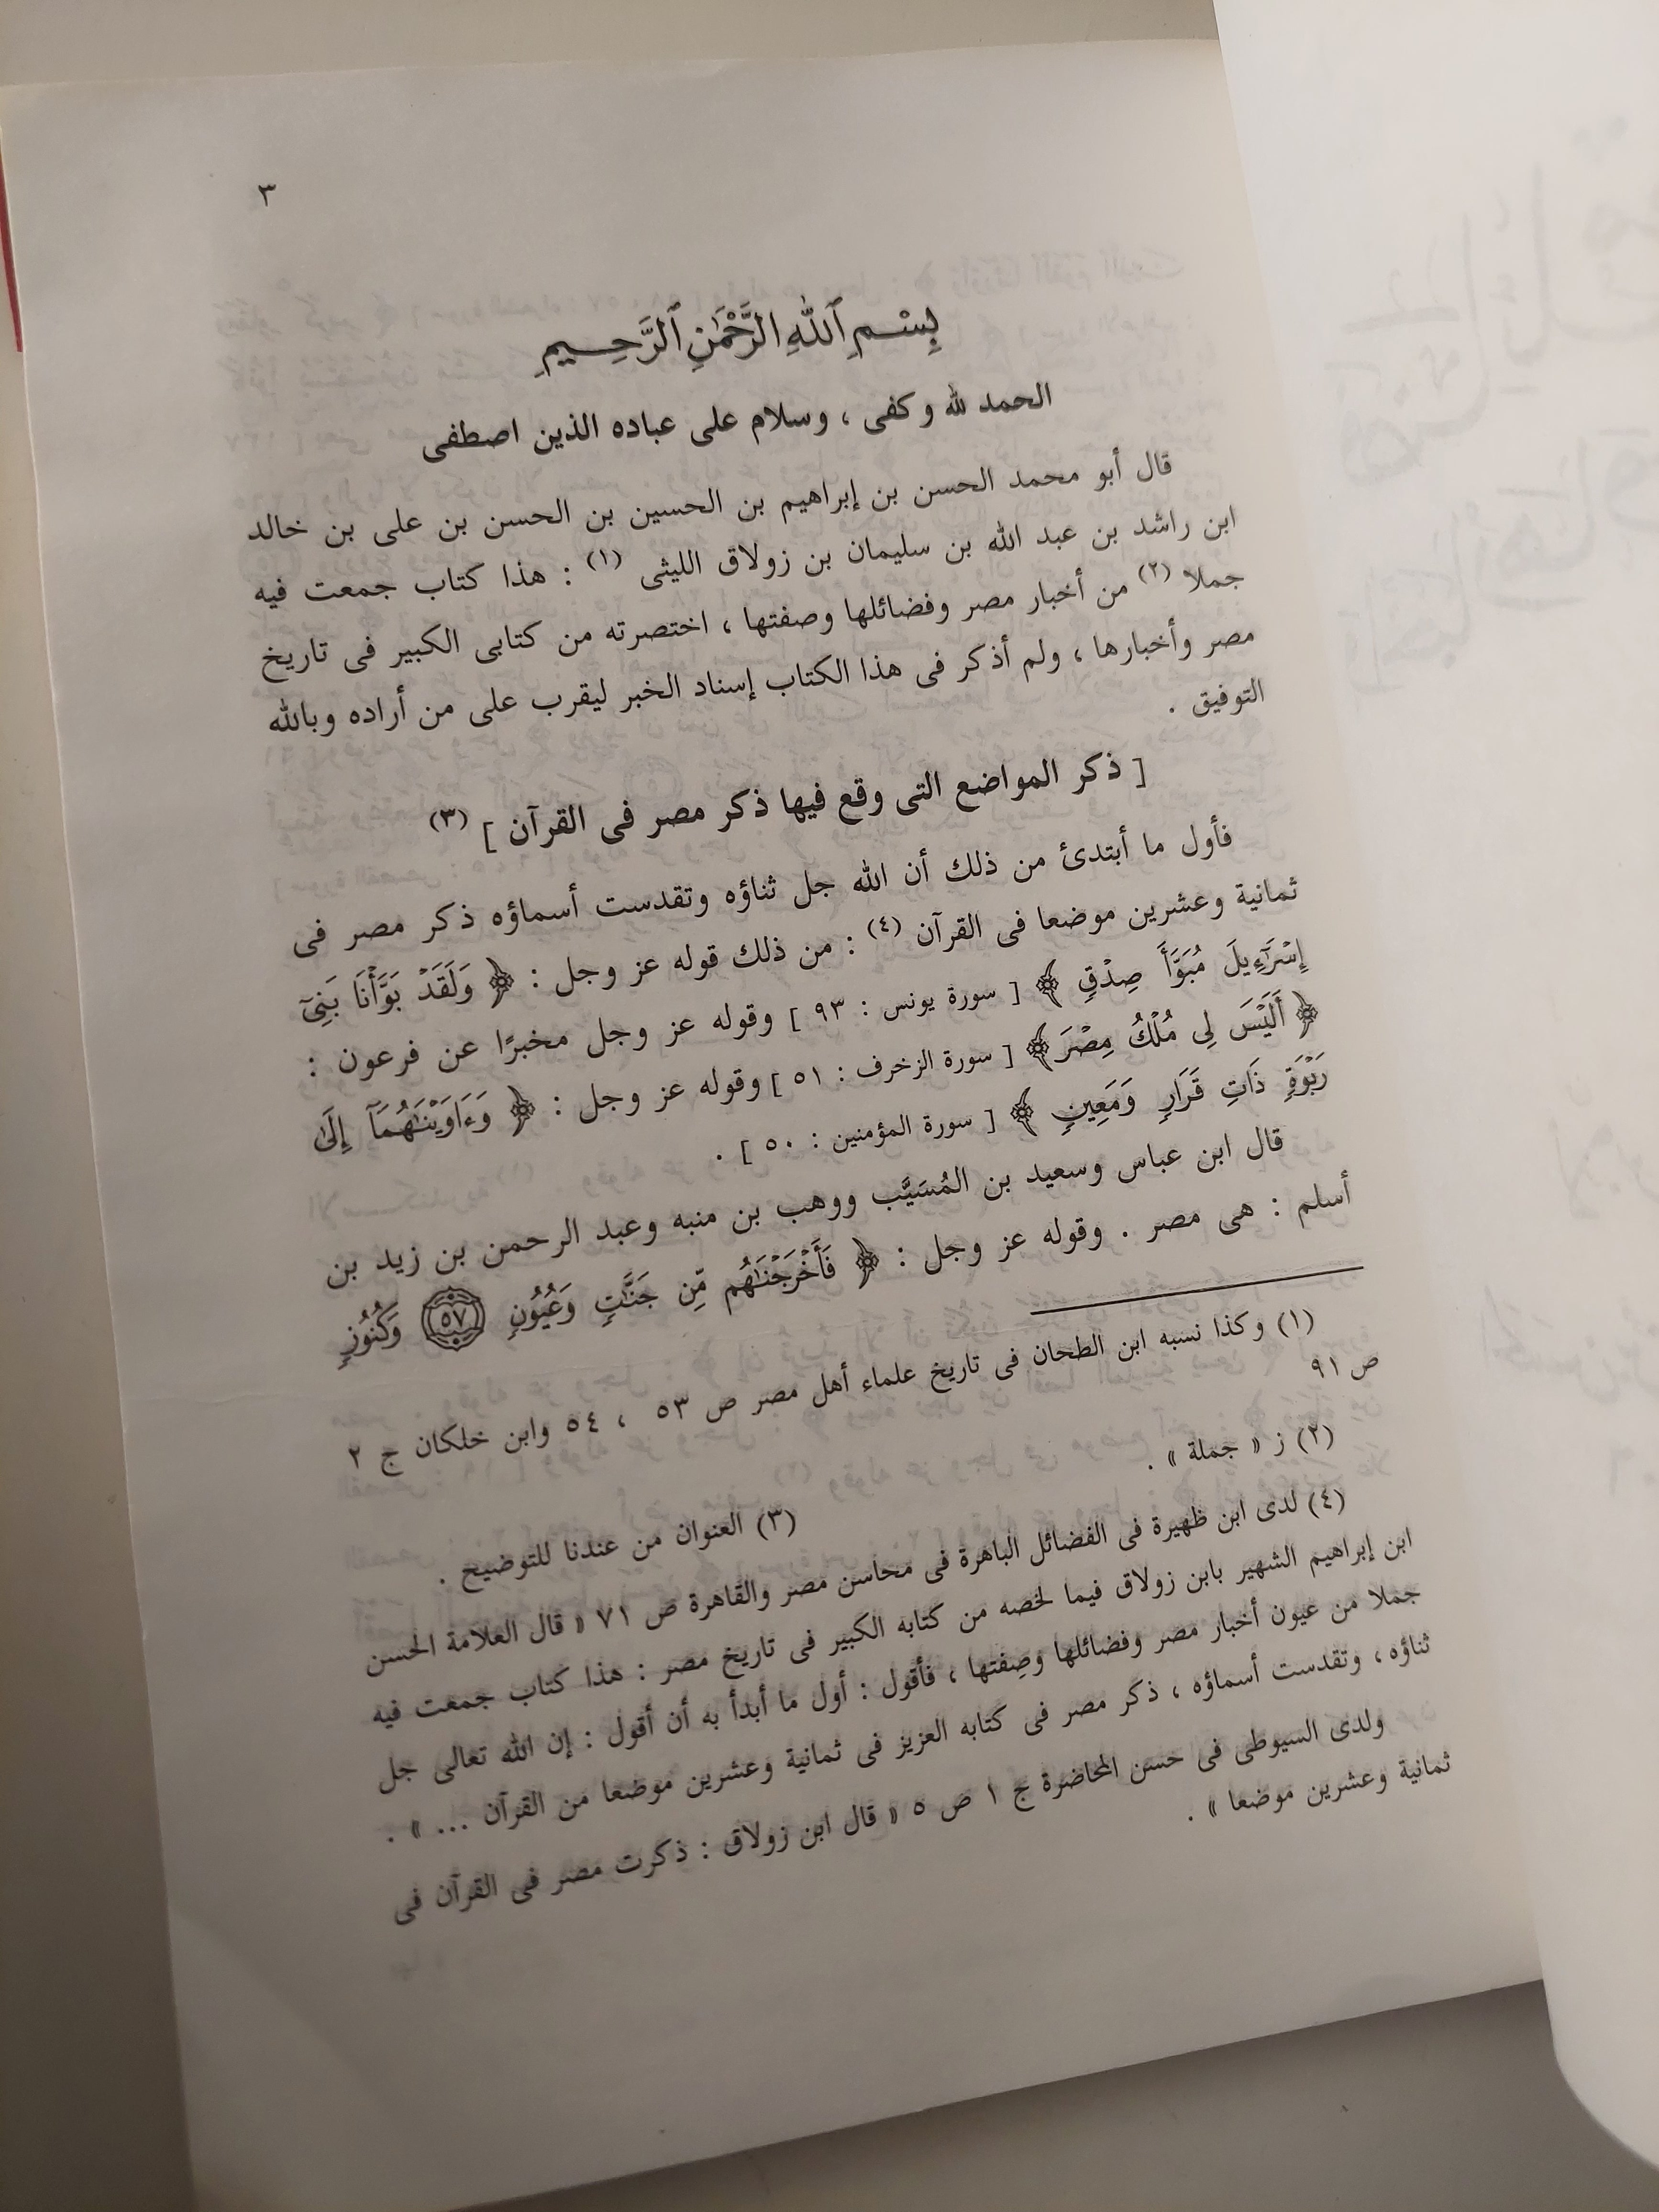 ٣
بِسْمِ ٱللَّهِ الرَّحْمَٰنِ ٱلرَّحِيمِ
الحمد لله وكفى ، وسلام على عباده الذين اصطفى
قال أبو محمد الحسن بن إبراهيم بن الحسين بن الحسن بن على بن خالد
ابن راشد بن عبد الله بن سليمان بن زولاق الليثى (١) : هذا كتاب جمعت فيه
جملا (٢) من أخبار مصر وفضائلها وصفتها ، اختصرته من كتابى الكبير فى تاريخ
مصر وأخبارها ، ولم أذكر فى هذا الكتاب إسناد الخبر ليقرب على من أراده وبالله
التوفيق .
[ ذكر المواضع التى وقع فيها ذكر مصر فى القرآن ] (٣)
فأول ما أبتدئ من ذلك أن الله جل ثناؤه وتقدست أسماؤه ذكر مصر فى
ثمانية وعشرين موضعا فى القرآن (٤) : من ذلك قوله عز وجل : ﴿ وَلَقَدۡ بَوَّأۡنَا بَنِىٓ
إِسۡرَٰٓءِيلَ مُبَوَّأَ صِدۡقٍ ﴾ [ سورة يونس : ٩٣ ] وقوله عز وجل مخبرًا عن فرعون :
﴿ أَلَيۡسَ لِى مُلۡكُ مِصۡرَ﴾ [ سورة الزخرف : ٥١ ] وقوله عز وجل : ﴿ وَءَاوَيۡنَٰهُمَآ إِلَىٰ
رَبۡوَةٍ ذَاتِ قَرَارٍ وَمَعِينٍ ﴾ [ سورة المؤمنين : ٥٠ ] .
قال ابن عباس وسعيد بن المُسَيَّب ووهب بن منبه وعبد الرحمن بن زيد بن
أسلم : هى مصر . وقوله عز وجل : ﴿ فَأَخۡرَجۡنَٰهُم مِّن جَنَّٰتٍ وَعُيُونٍ ٥٧ وَكُنُوزٍ
(١) وكذا نسبه ابن الطحان فى تاريخ علماء أهل مصر ص ٥٣ ، ٥٤ وابن خلكان ج ٢
ص ٩١
(٢) ز « جملة » .
(٣) العنوان من عندنا للتوضيح .
(٤) لدى ابن ظهيرة فى الفضائل الباهرة فى محاسن مصر والقاهرة ص ٧١ « قال العلامة الحسن
ابن إبراهيم الشهير بابن زولاق فيما لخصه من كتابه الكبير فى تاريخ مصر : هذا كتاب جمعت فيه
جملا من عيون أخبار مصر وفضائلها وصِفتها ، فأقول : أول ما أبدأ به أن أقول : إن الله تعالى جل
ثناؤه ، وتقدست أسماؤه ، ذكر مصر فى كتابه العزيز فى ثمانية وعشرين موضعا من القرآن ... » .
ولدى السيوطى فى حسن المحاضرة ج ١ ص ٥ « قال ابن زولاق : ذكرت مصر فى القرآن فى
ثمانية وعشرين موضعا » .